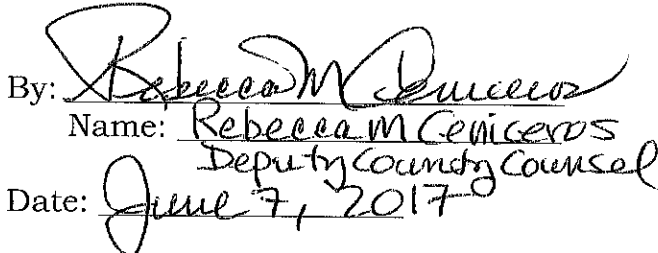 By: Rebecca M Ceniceros
Name: Rebecca M Ceniceros
Deputy County Counsel
Date: June 7, 2017